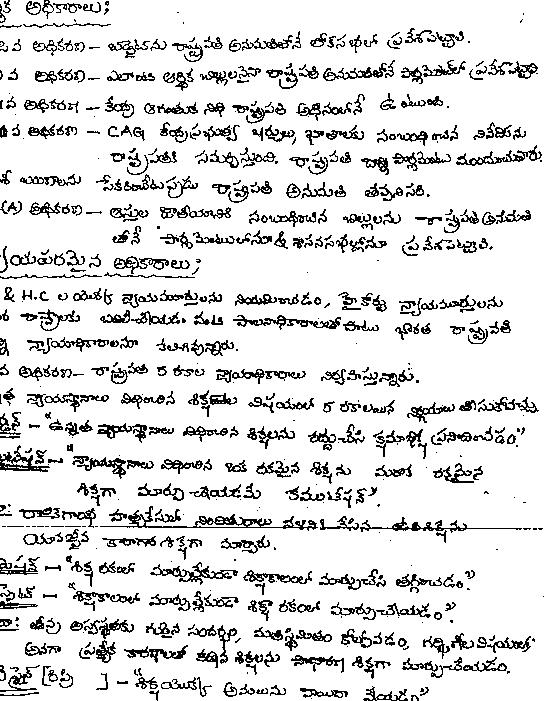 అధికారాలు;
వ అధికరణ – బడ్జెట్‌ను రాష్ట్రపతి అనుమతితోనే లోక్‌సభలో ప్రవేశపెట్టాలి.
వ అధికరణ – ఆర్థిక బిల్లులనైనా రాష్ట్రపతి అనుమతితోనే పార్లమెంట్‌లో ప్రవేశపెట్టాలి
వ అధికరణ – కేంద్ర ఆగంతుక నిధి రాష్ట్రపతి ఆధీనంలోనే ఉంటుంది.
వ అధికరణ – CAG కేంద్రప్రభుత్వ ఖర్చులు, ఖాతాలకు సంబంధించిన నివేదికను
రాష్ట్రపతికి సమర్పిస్తుంది. రాష్ట్రపతి దాన్ని పార్లమెంటు ముందుంచుతారు.
రాష్ట్రపతి అనుమతి తప్పనిసరి.
(A) అధికరణ – ఆస్తుల జాతీయానికి సంబంధించిన బిల్లులను రాష్ట్రపతి అనుమతి
తోనే పార్లమెంటులోనూ శాసనసభల్లోనూ ప్రవేశపెట్టాలి.
న్యాయపరమైన అధికారాలు;
& H.C ల యొక్క న్యాయమూర్తులను నియమించడం, హైకోర్టు న్యాయమూర్తులను
రాష్ట్రాలకు బదిలీచేయడం వంటి పాలనాధికారాలతోపాటు భారత రాష్ట్రపతి
న్యాయాధికారాలనూ కలిగివున్నారు.
వ అధికరణ – రాష్ట్రపతి ర రకాల న్యాయాధికారాలు నిర్వహిస్తున్నారు.
న్యాయస్థానాలు విధించిన శిక్షల విషయంలో ర రకాలయిన నిర్ణయాలు తీసుకోవచ్చు.
– "ఉన్నత న్యాయస్థానాలు విధించిన శిక్షలను రద్దుచేసి క్షమాభిక్ష ప్రసాదించడం."
– "న్యాయస్థానాలు విధించిన ఒక రకమైన శిక్షను మరొక రకమైన
శిక్షగా మార్పు చేయడమే కమ్యుటేషన్".
హత్యకేసులో నిందితురాలు నళినికి వేసిన ఉరిశిక్షను
యావజ్జీవ కారాగార శిక్షగా మార్చారు.
– "శిక్ష రకంలో మార్పులేకుండా శిక్షాకాలంలో మార్పుచేసి తగ్గించడం."
– "శిక్షాకాలంలో మార్పులేకుండా శిక్షా రకంలో మార్పుచేయడం".
తీవ్ర అస్వస్థతకు గురైన సందర్భం, మతిస్థిమితం కోల్పోవడం, గర్భిణీల విషయంలో
ప్రత్యేక కారణాలతో కఠిన శిక్షలను సాధారణ శిక్షగా మార్పుచేయడం.
– "శిక్షయొక్క అమలును వాయిదా వేయడం"